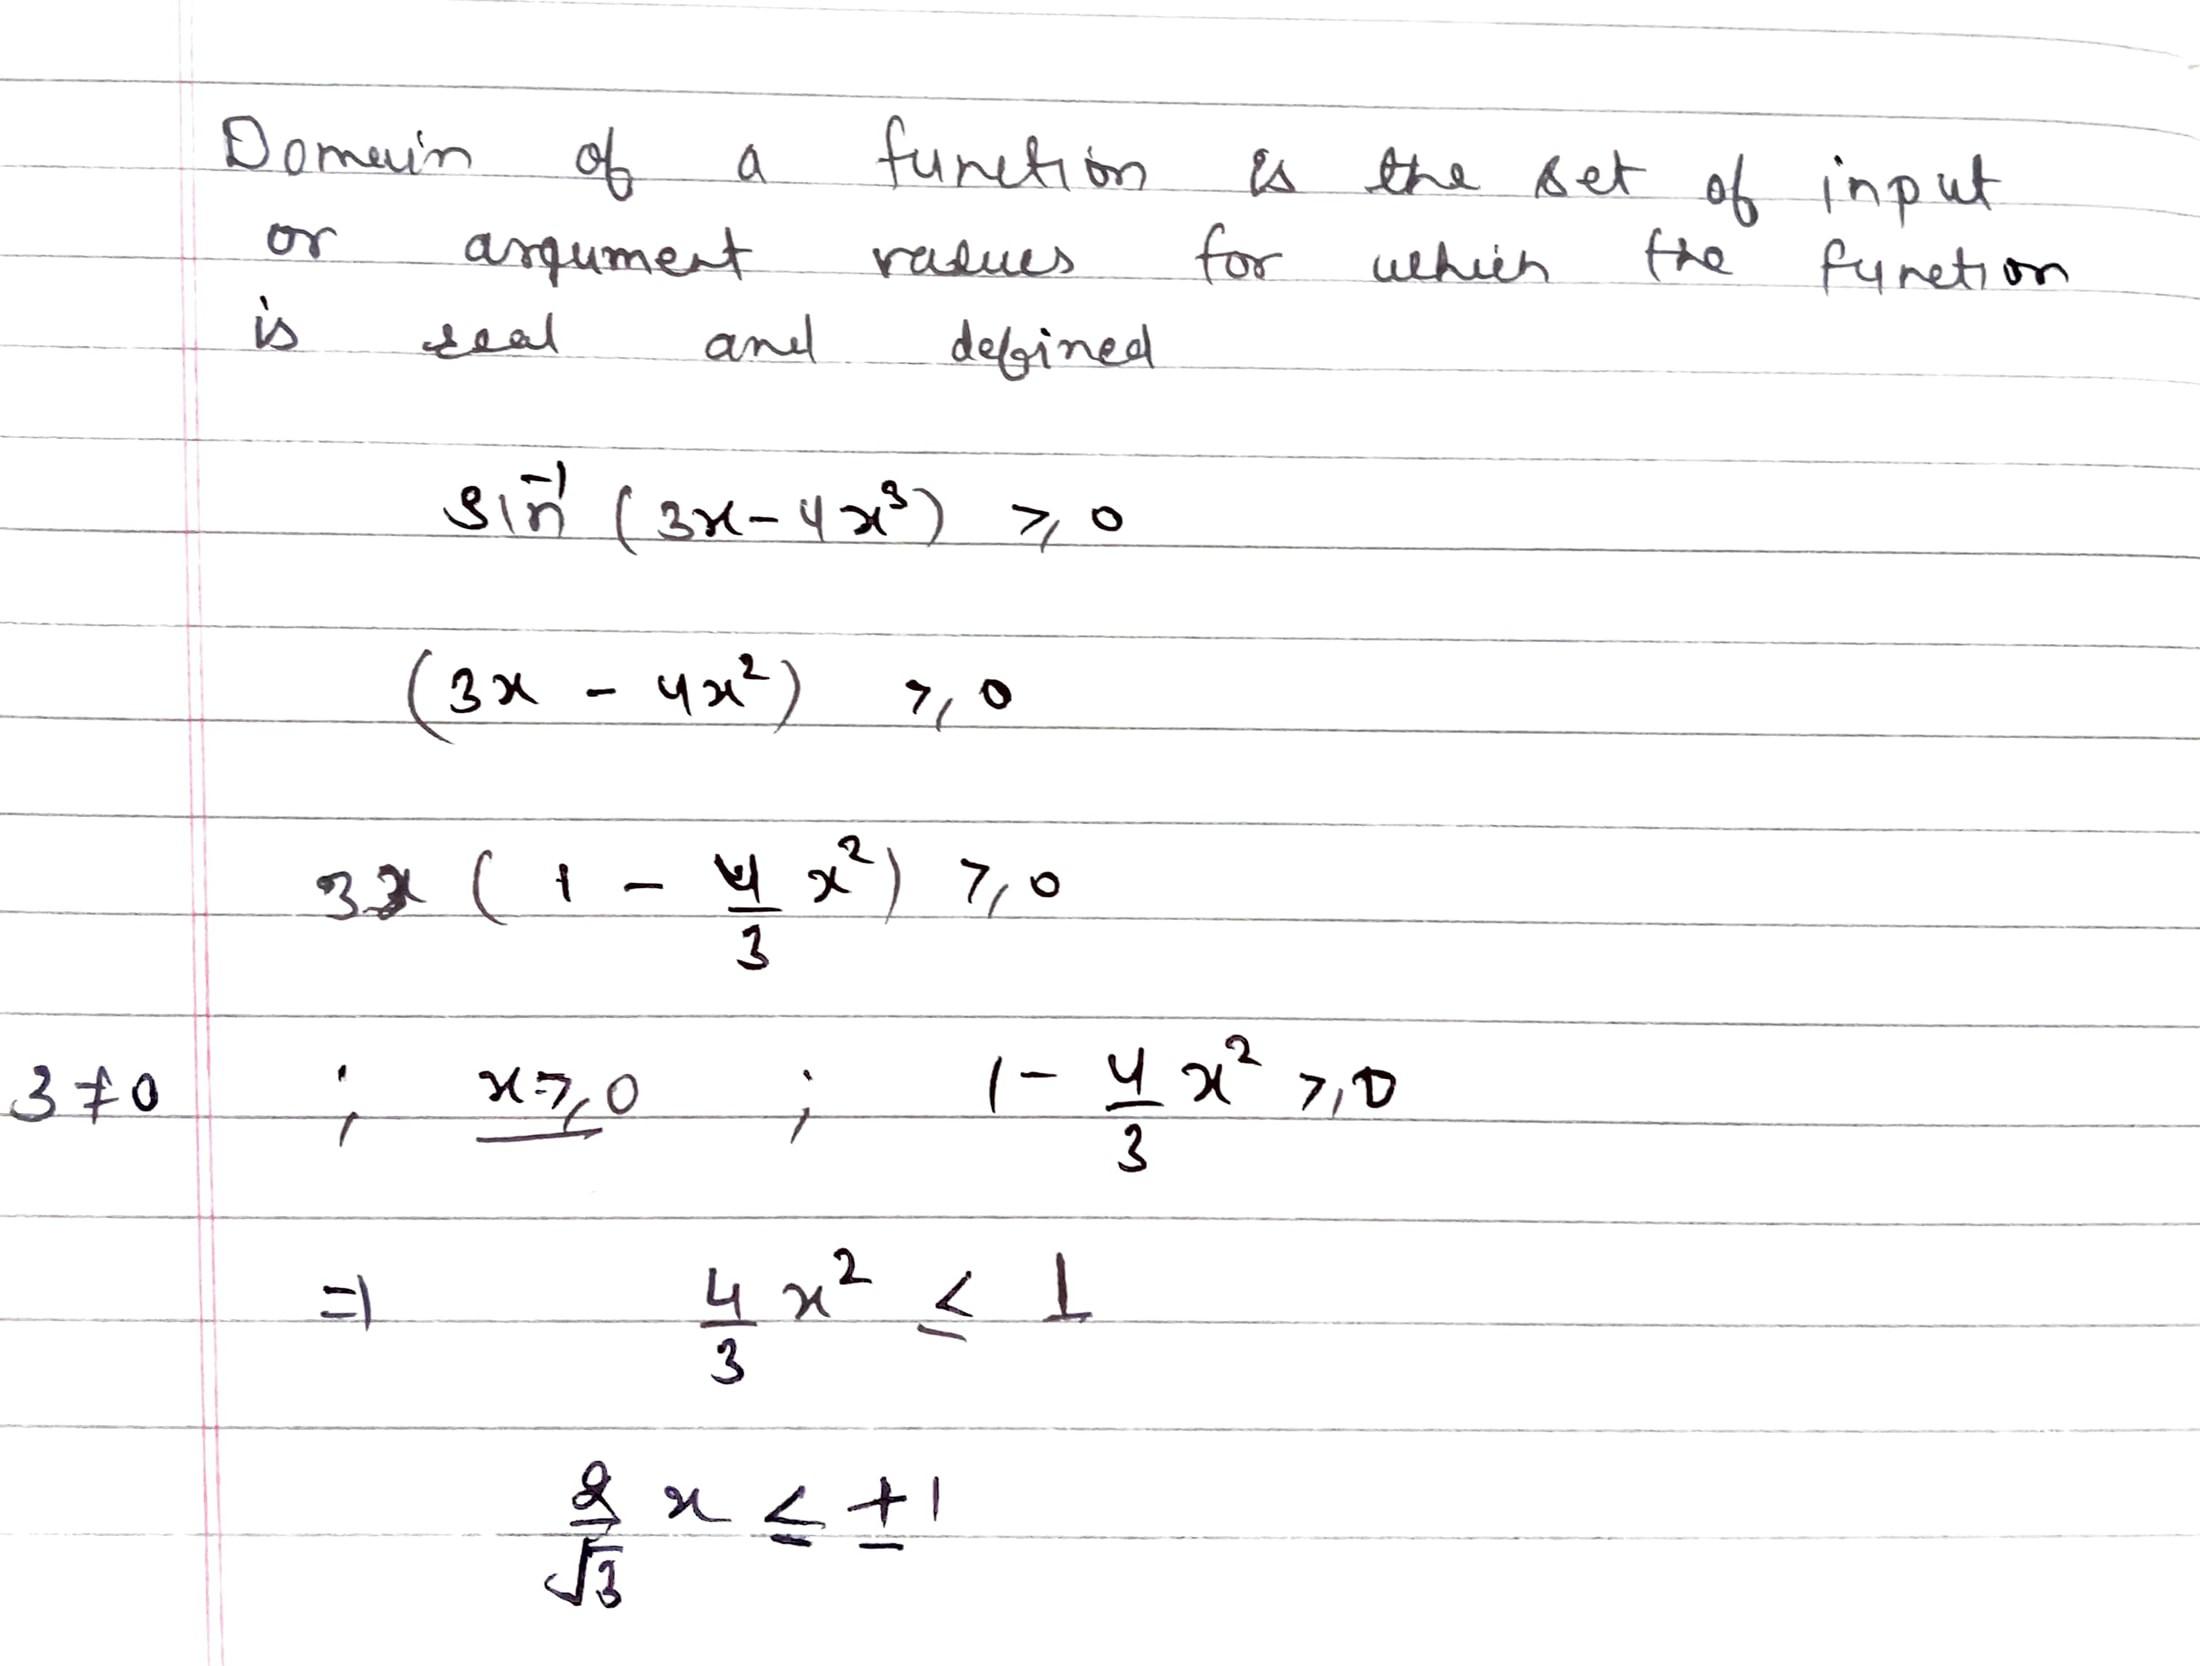 Domain of a function is the set of input
or argument values for which the function
is real and defined
sin⁻¹ (3x - 4x³) ≥ 0
(3x - 4x²) ≥ 0
3x (1 - 4/3 x²) ≥ 0
3 ≠ 0 ; x ≥ 0 ; 1 - 4/3 x² ≥ 0
⇒ 4/3 x² ≤ 1
2/√3 x ≤ ±1